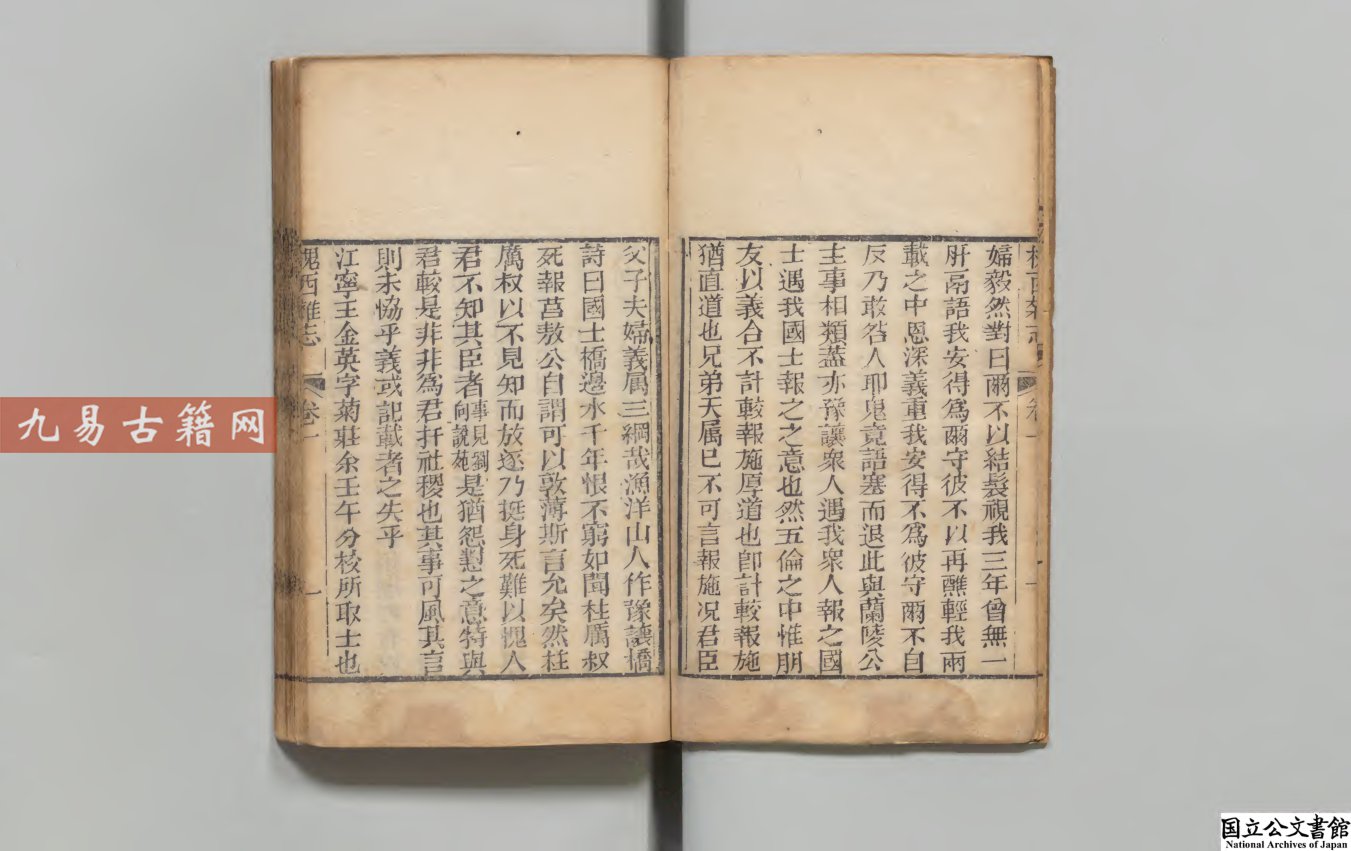 婦毅然對曰爾不以結髮視我三年曾無一
肝鬲語我安得爲爾守彼不以再醮輕我兩
載之中恩深義重我安得不爲彼守爾不自
反乃敢咎人耶鬼竟語塞而退此與蘭陵公
主事相類蓋亦豫讓衆人遇我衆人報之國
士遇我國士報之之意也然五倫之中惟朋
友以義合不計較報施厚道也卽計較報施
猶直道也兄弟天属已不可言報施况君臣
父子夫婦義属三綱哉漁洋山人作豫讓橋
詩曰國士橋邊水千年恨不窮如聞柱厲叔
死報莒敖公自謂可以敦薄斯言允矣然柱
厲叔以不見知而放逐乃挺身死難以愧人
君不知其臣者事見劉向說苑是猶怨懟之意特與
君較是非非爲君扞社稷也其事可風其言
則未恊乎義或記載者之失乎
江寧王金英字菊莊余壬午分校所取士也
槐西雜志
卷一
一
九易古籍网
国立公文書館
National Archives of Japan